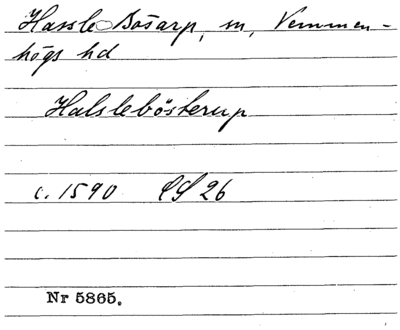 Hassle-Bösarp, sn, Vemmen-
högs hd
Halslebösterup
c. 1590 LS 26
Nr 5865.